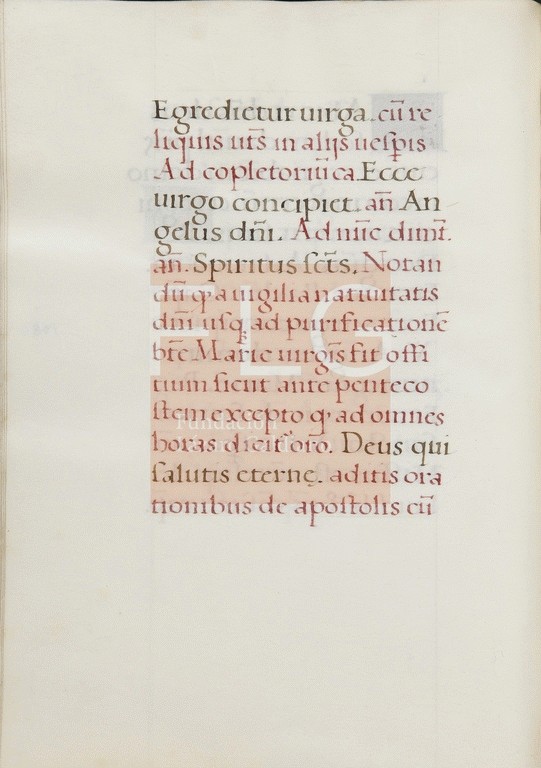 Egredietur uirga. cū re
liquis uts̄ in alijs uesp̄is
Ad cōpletoriū ca. Ecce
uirgo concipiet. an̄. An
gelus dn̄i. Ad nūc dimt̄.
an̄. Spiritus scts̄. Notan
dū q̄ a uigilia natiuitatis
dn̄i usq̢ ad purificationē
btē Marie uirgīs fit offi
tium sicut ante penteco
stem excepto q̄ ad omnes
horas dicit' orō. Deus qui
salutis eternę. aditis ora
tionibus de apostolis cū
FLG
Fundación